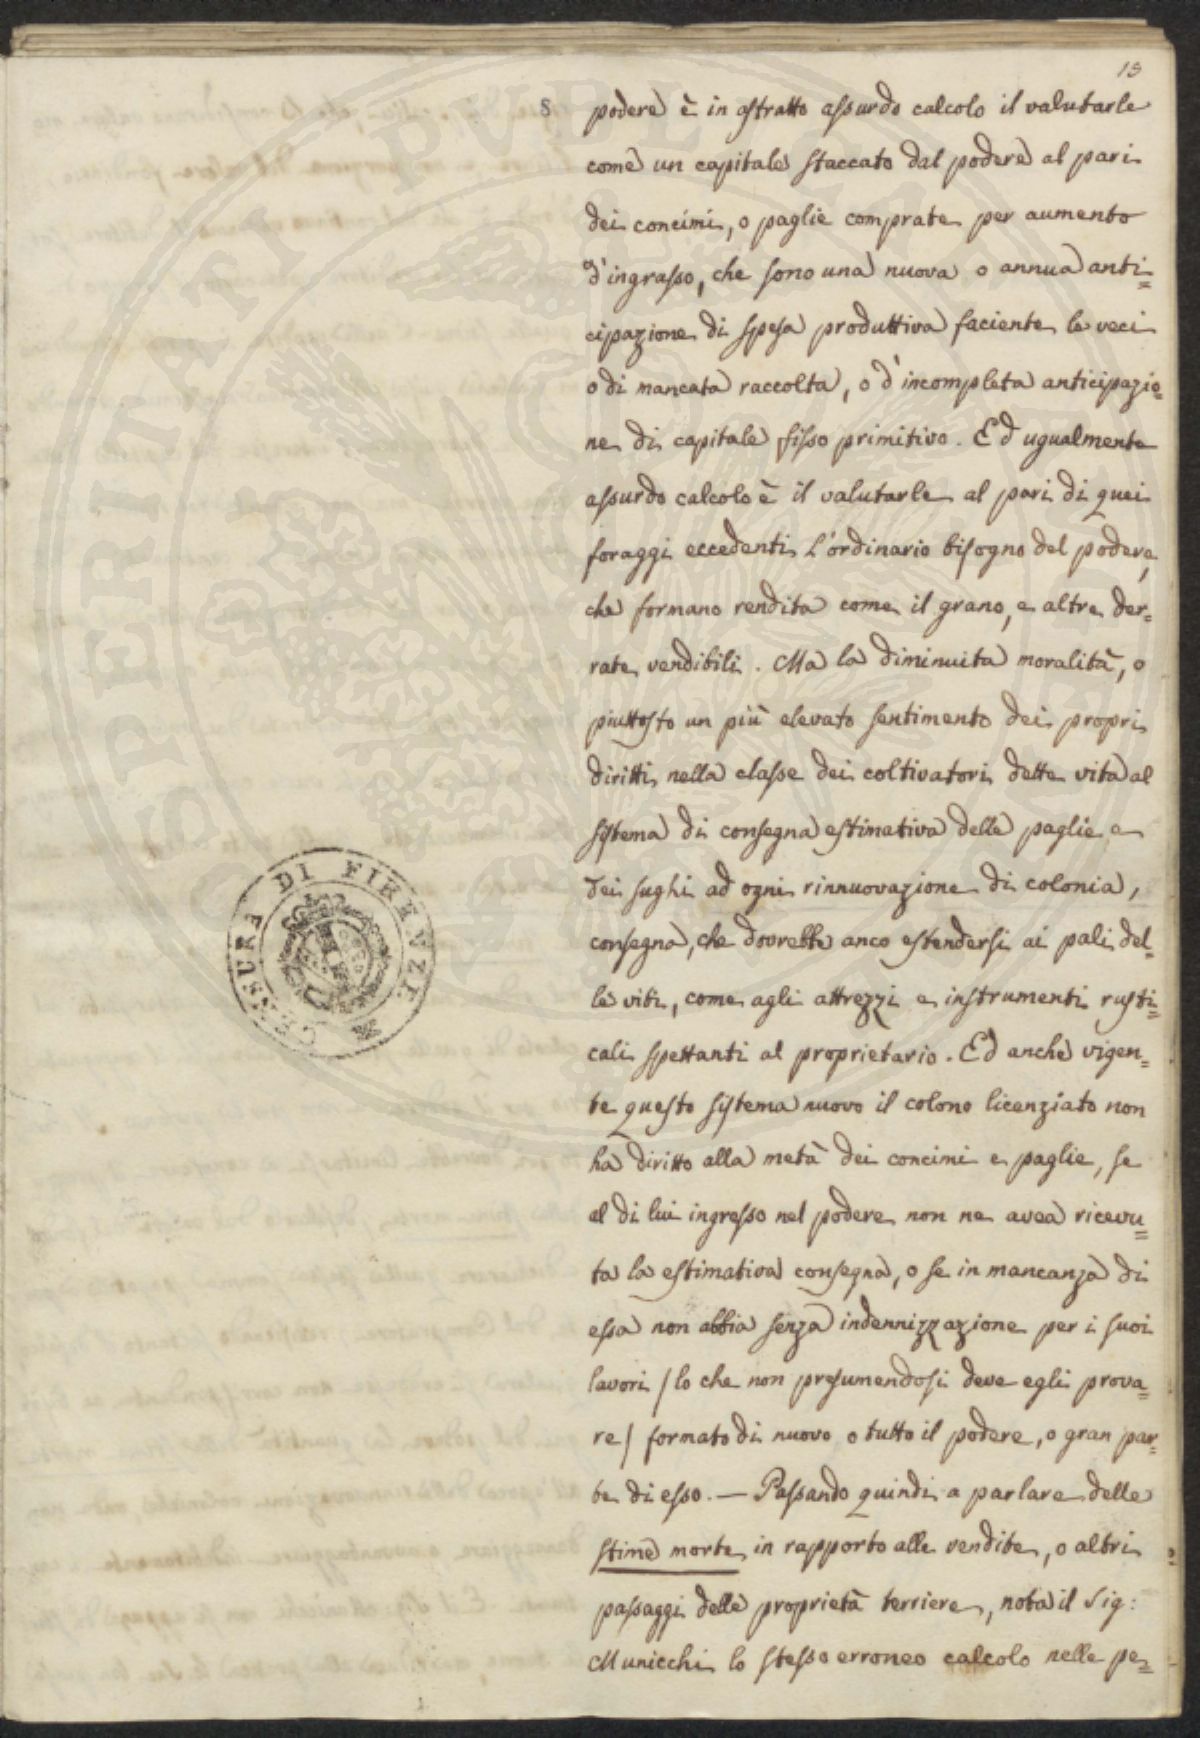 13
8
podere è in astratto assurdo calcolo il valutarle
come un capitale staccato dal podere al pari
dei concimi, o paglie comprate per aumento
d'ingrasso, che sono una nuova o annua anti=
cipazione di spesa produttiva faciente le veci
o di mancata raccolta, o d'incompleta anticipazio=
ne di capitale fisso primitivo. Ed ugualmente
assurdo calcolo è il valutarle al pari di quei
foraggi eccedenti l'ordinario bisogno del podere,
che formano rendita come il grano, e altre der=
rate vendibili. Ma la diminuita moralità, o
piuttosto un più elevato sentimento dei propri
diritti nella classe dei coltivatori dette vita al
sistema di consegna estimativa delle paglie e
dei sughi ad ogni rinnuovazione di colonia,
consegna, che dovrebbe anco estendersi ai pali del=
le viti, come agli attrezzi e instrumenti rusti=
cali spettanti al proprietario. Ed anche vigen=
te questo sistema nuovo il colono licenziato non
ha diritto alla metà dei concimi e paglie, se
al di lui ingresso nel podere non ne avea ricevu=
ta la estimativa consegna, o se in mancanza di
essa non abbia senza indennizzazione per i suoi
lavori / lo che non presumendosi deve egli prova=
re / formato di nuovo o tutto il podere, o gran par=
te di esso. — Passando quindi a parlare delle
stime morte in rapporto alle vendite, o altri
passaggi delle proprietà terriere, nota il Sig:
Municchi lo stesso erroneo calcolo nelle pe=
CENSURA DI FIRENZE
SPERITATI PVBLICAE